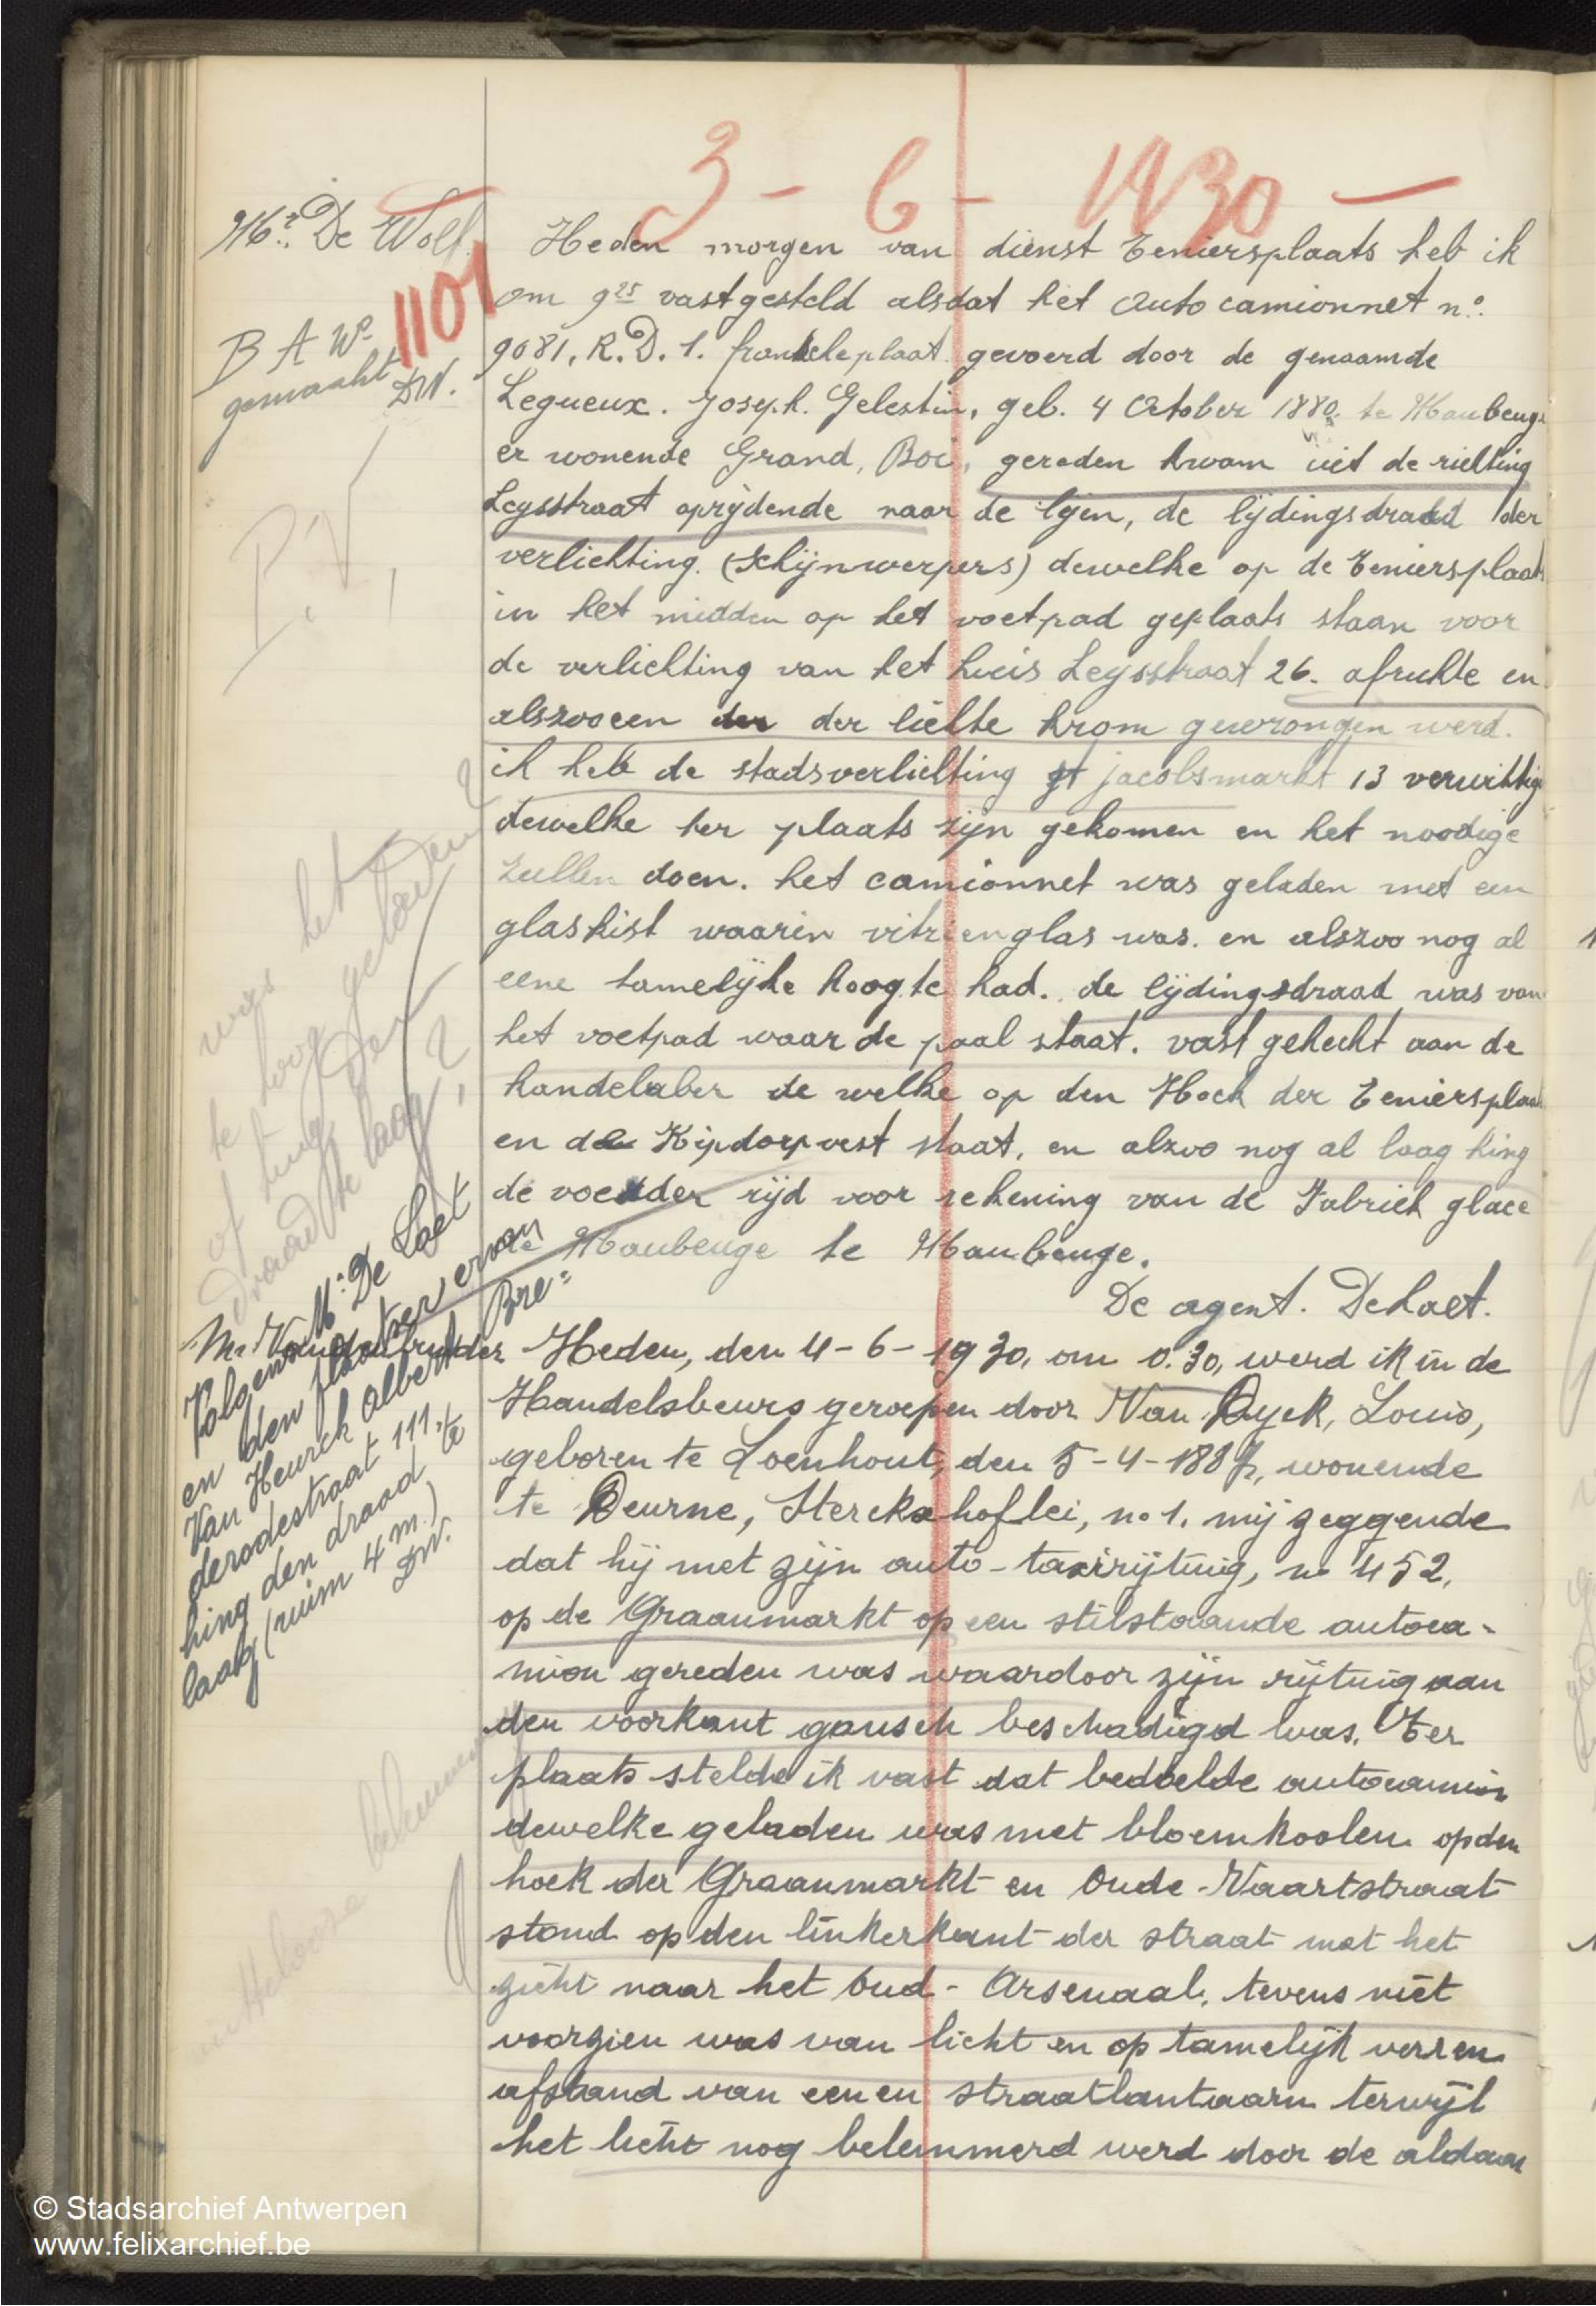 3 - 6 - 1930 -
Mr. De Wolf.
1107
B A Wo
gemaakt
DW.
P.V.
Heden morgen van dienst Teniersplaats heb ik
om 9 25 vastgesteld alsdat het auto camionnet no.
9081, R.D. 1. fransche plaat gevoerd door de genaamde
Legueux. Joseph. Gelestin, geb. 4 October 1880 te Maubeuge
er wonende Grand, Boi, gereden kwam uit de richting
Leysstraat oprijdende naar de lijen, de lijdingsdraad der
verlichting. (schijnwerpers) dewelke op de Teniersplaats
in het midden op het voetpad geplaats staan voor
de verlichting van het huis Leysstraat 26. afrukte en
alszooeen der der lichte krom gewrongen werd.
ik heb de stadsverlichting st jacobsmarkt 13 verwittigd
dewelke ter plaats zijn gekomen en het noodige
zullen doen. het camionnet was geladen met een
glaskist waarin vitrienglas was. en alszoo nog al
eene tamelijke hoogte had. de lijdingsdraad was van
het voetpad waar de paal staat. vast gehecht aan de
kandelaber de welke op den Hoek der Teniersplaats
en de Kipdorpvest staat, en alzoo nog al laag hing
de voerder rijd voor rekening van de Fabriek glace
de Maubeuge te Maubeuge.
De agent. DeLaet.
was het
te hoog geladen?
of hing den
draad te laag?
Volgens M. De Laet
en den plaatser ervan
Van Heurck Albert, Bre-
derodestraat 111, te
hing den draad
laag (ruim 4 m.)
DW.
Mr. Vandenbulder
Heden, den 4-6-1930, om 0.30, werd ik in de
Handelsbeurs geroepen door Van Dyck, Louis,
geboren te Loenhout, den 5-4-1887, wonende
te Deurne, Sterckxhoflei, no 1. mij zeggende
dat hij met zijn auto-taxirijtuig, no 452,
op de Graanmarkt op een stilstaande autoca-
mion gereden was waardoor zijn rijtuig aan
den voorkant gansch beschadigd was. Ter
plaats stelde ik vast dat bedoelde autocamion
dewelke geladen was met bloemkoolen op den
hoek der Graanmarkt en Oude-Vaartstraat
stond op den linkerkant der straat met het
zicht naar het Oud-Arsenaal, tevens niet
voorzien was van licht en op tamelijk verren
afstand van eenen straatlantaarn terwijl
het licht nog belemmerd werd door de aldaar
© Stadsarchief Antwerpen
www.felixarchief.be